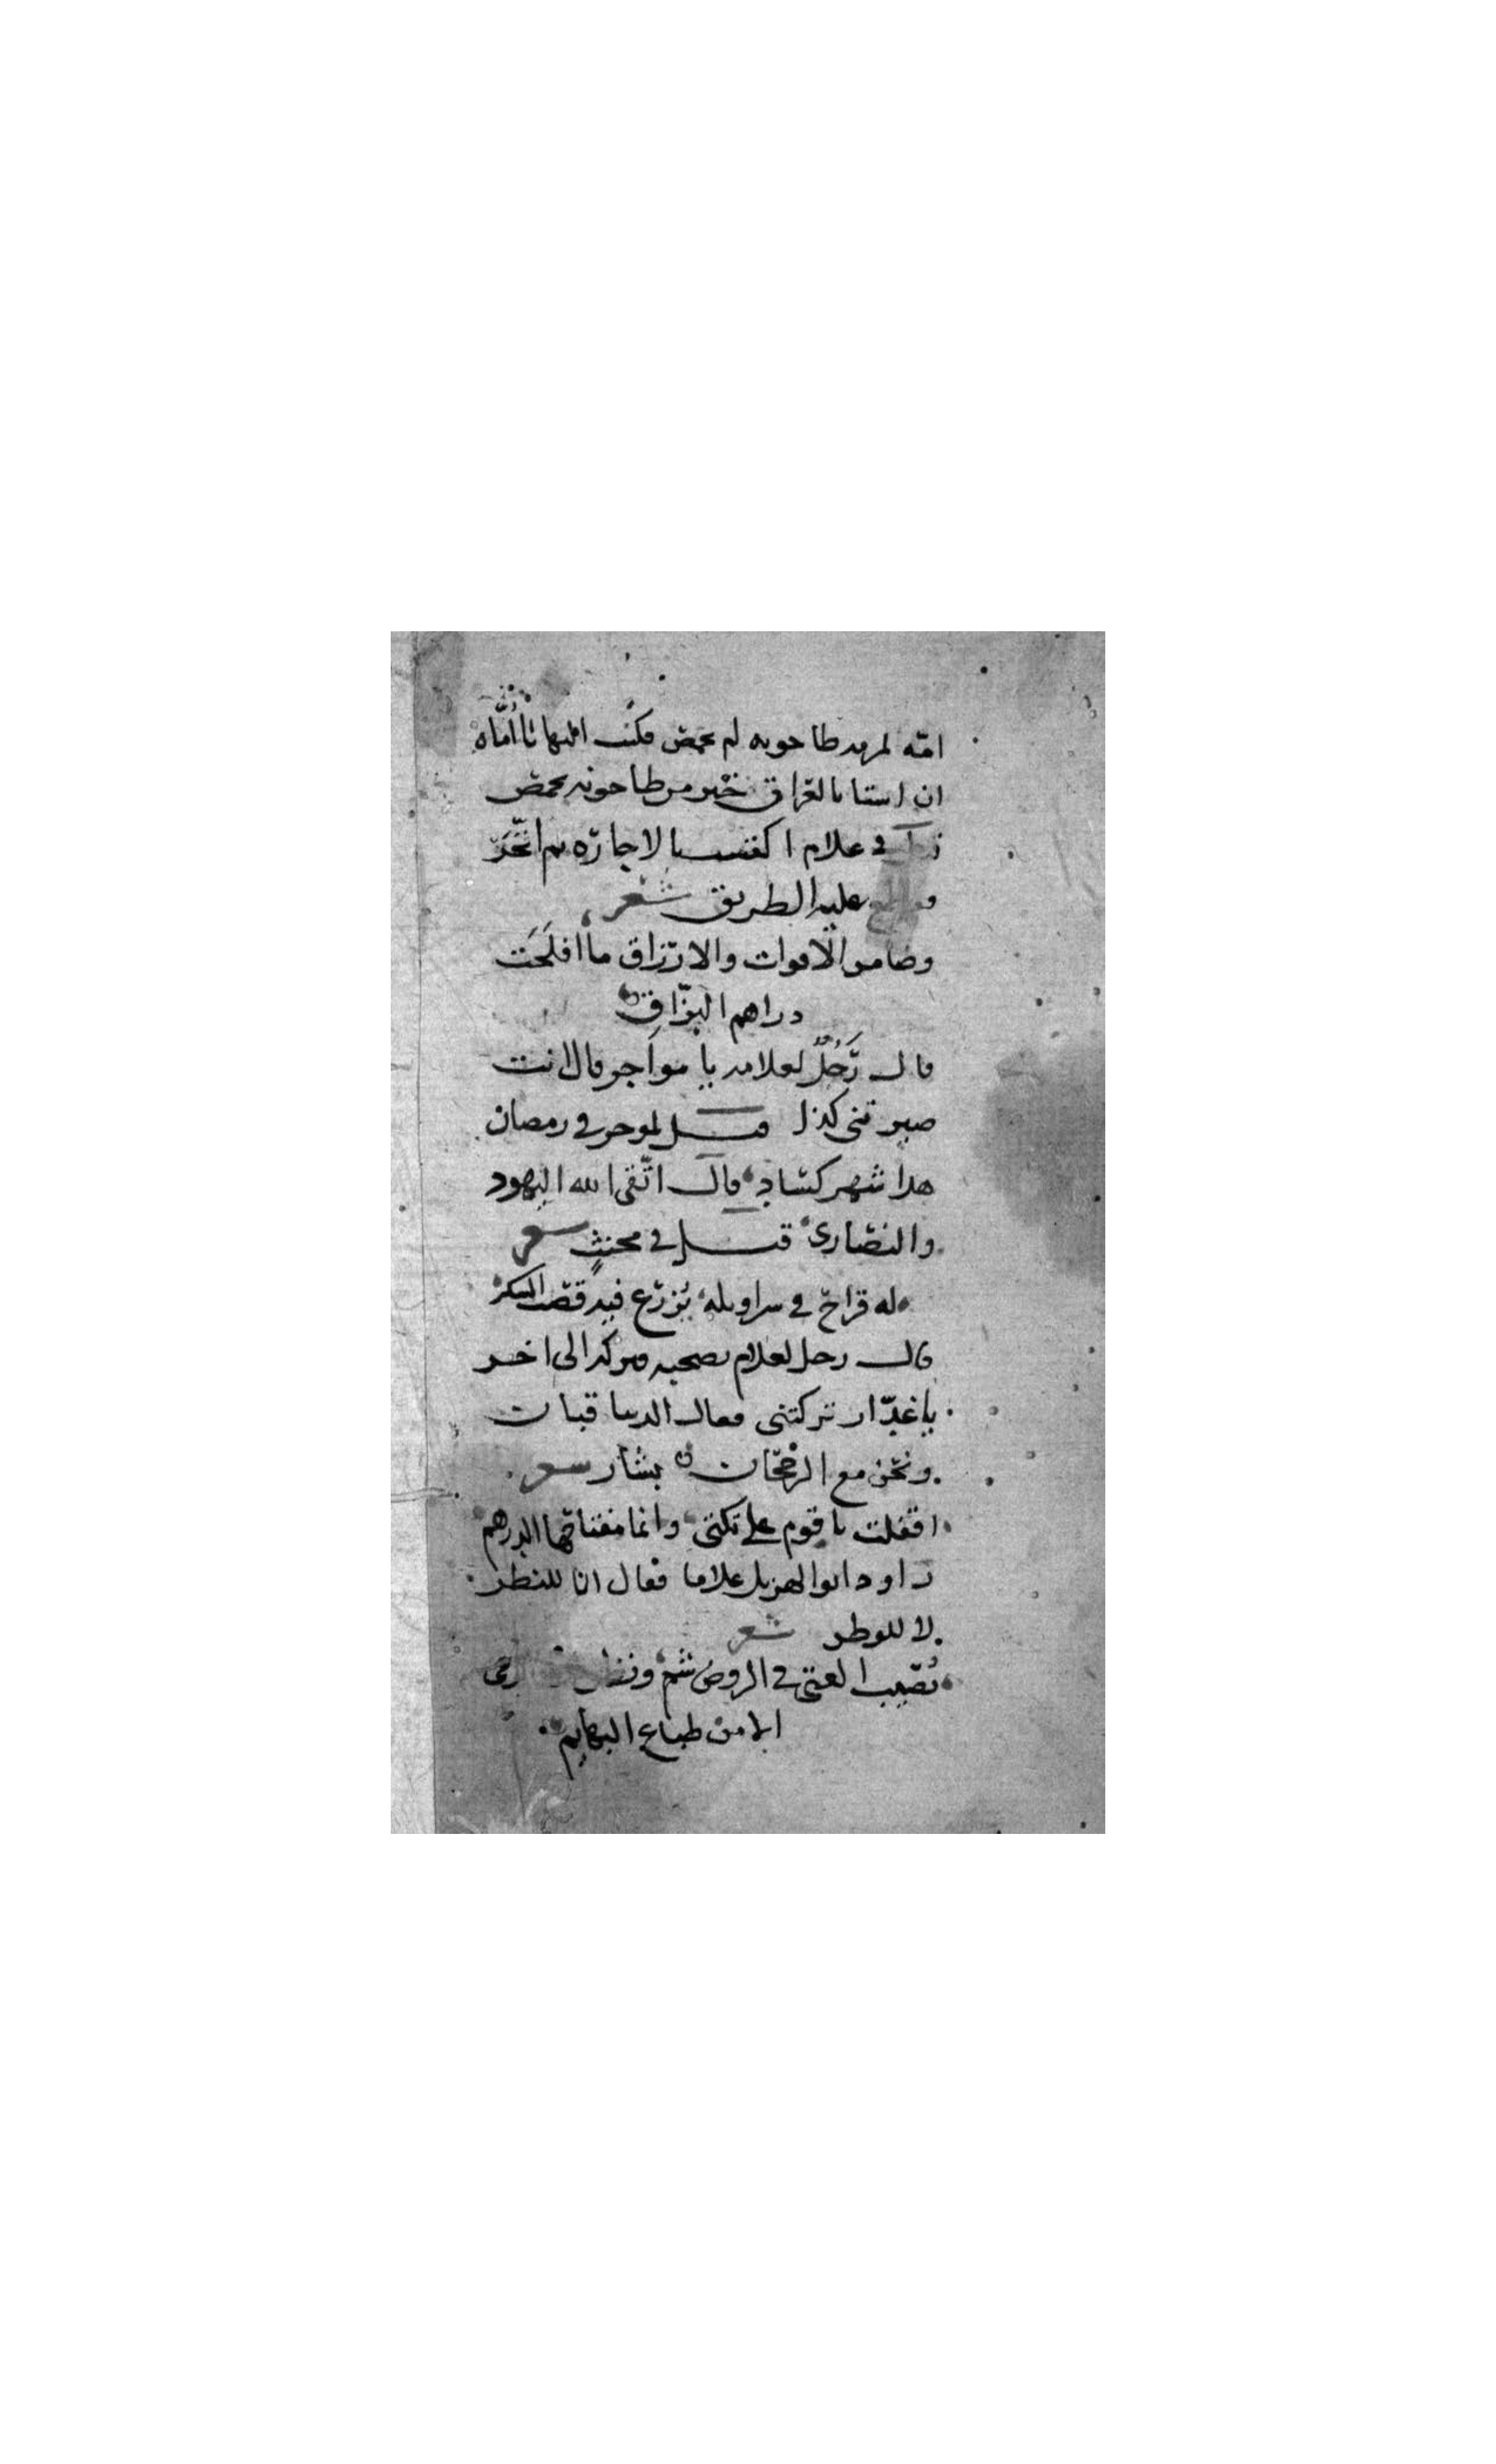 امّه لمرمه طاحونه لم بحمص فكتب اليها يا أمّاه
ان استا بالعراق خير من طاحونه بحمص
في غلام اكتسب بالاجارة ثم اتّجر
عليه الطريق شعر
وضامن الاقوات والارزاق ما افلَحَت
دراهم البزّاق
قال رَجُلٌ لغلامه يا مواجر قال انت
صيرتني كذا قيل لموجر في رمضان
هذا شهر كساد قال اتّقى الله اليهود
والنصارى قيل في مخنثٍ شعر
له قراح في سراويله يُزرَع فيه قصب السكر
قال رجل لغلام يصحبه وتركه الى اخر
يا غدّار تركتني فقال الدنيا قبان
ونحن مع الرجحان بشار شعر
اقفلت يا قوم على تكتي وانما مفتاحها الدرهم
راود ابو الهزيل غلاما فقال انا للنظر
لا للوطر شعر
نُصيب الفتى في الروض شم
الا من طباع البهايم